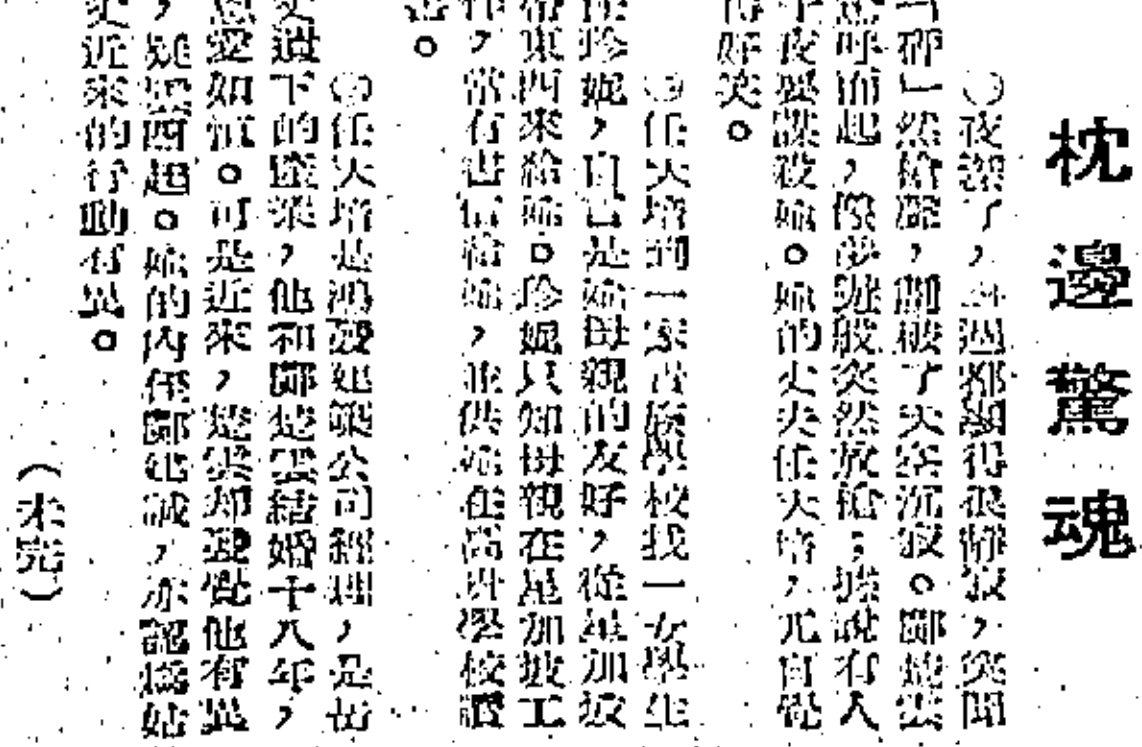 枕邊驚魂
夜深了，過都顯得很靜寂，突聞
「砰」然槍聲，劃破了天空沉寂。鄭楚雲
惡呼而起，像夢遊般突然放槍；據說有人
子夜要謀殺她。她的丈夫任天培，尤自覺
得好笑。
任天培到一家書院學校找一女學生
任珍妮，自言是她母親的友好，從星加坡
帶東西來給她。珍妮只知母親在星加坡工
作，常有書信給她，並供她在高班學校讀
書。
任天培是鴻發建築公司經理，是岳
丈遺下的產業，他和鄭楚雲結婚十八年，
恩愛如恒。可是近來，楚雲却發覺他有異
，疑雲四起。她的內侄鄭建誠，亦認爲姑
丈近來的行動有異。
（未完）